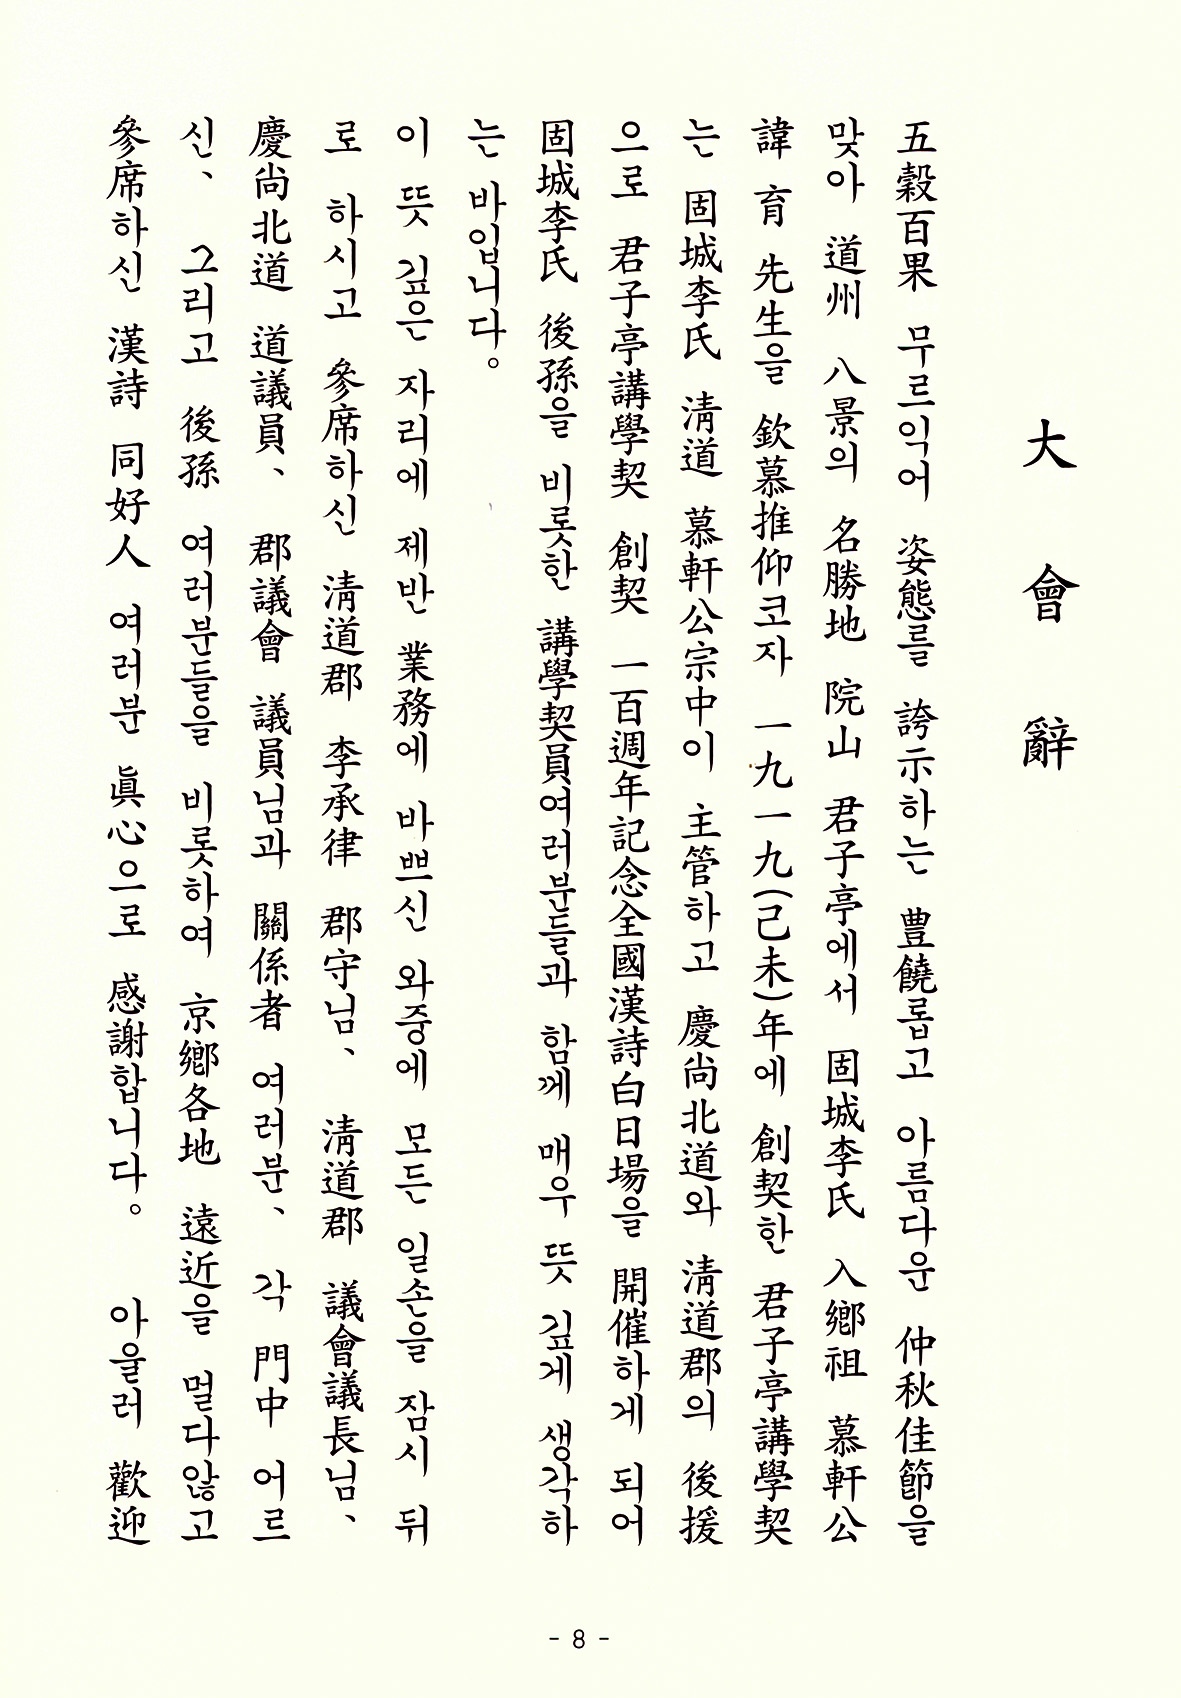 大會辭
五穀百果 무르익어 姿態를 誇示하는 豊饒롭고 아름다운 仲秋佳節을
맞아 道州 八景의 名勝地 院山 君子亭에서 固城李氏 入鄕祖 慕軒公
諱 育 先生을 欽慕推仰코자 一九一九(己未)年에 創契한 君子亭講學契
는 固城李氏 淸道 慕軒公宗中이 主管하고 慶尚北道와 淸道郡의 後援
으로 君子亭講學契 創契 一百週年記念全國漢詩白日場을 開催하게 되어
固城李氏 後孫을 비롯한 講學契員여러분들과 함께 매우 뜻 깊게 생각하
는 바입니다。
이 뜻 깊은 자리에 제반 業務에 바쁘신 와중에 모든 일손을 잠시 뒤
로 하시고 參席하신 淸道郡 李承律 郡守님、 淸道郡 議會議長님、
慶尚北道 道議員、 郡議會 議員님과 關係者 여러분、 각 門中 어르
신、 그리고 後孫 여러분들을 비롯하여 京鄕各地 遠近을 멀다않고
參席하신 漢詩 同好人 여러분 眞心으로 感謝합니다。 아울러 歡迎
- 8 -